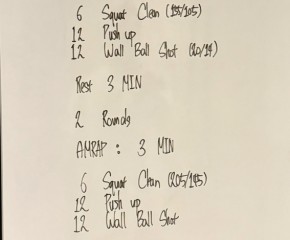 6 Squat Clean (155/105)
12 Push up
12 Wall Ball Shot (20/14)
Rest 3 MIN
2 Rounds
AMRAP : 3 MIN
6 Squat Clean (205/145)
12 Push up
12 Wall Ball Shot